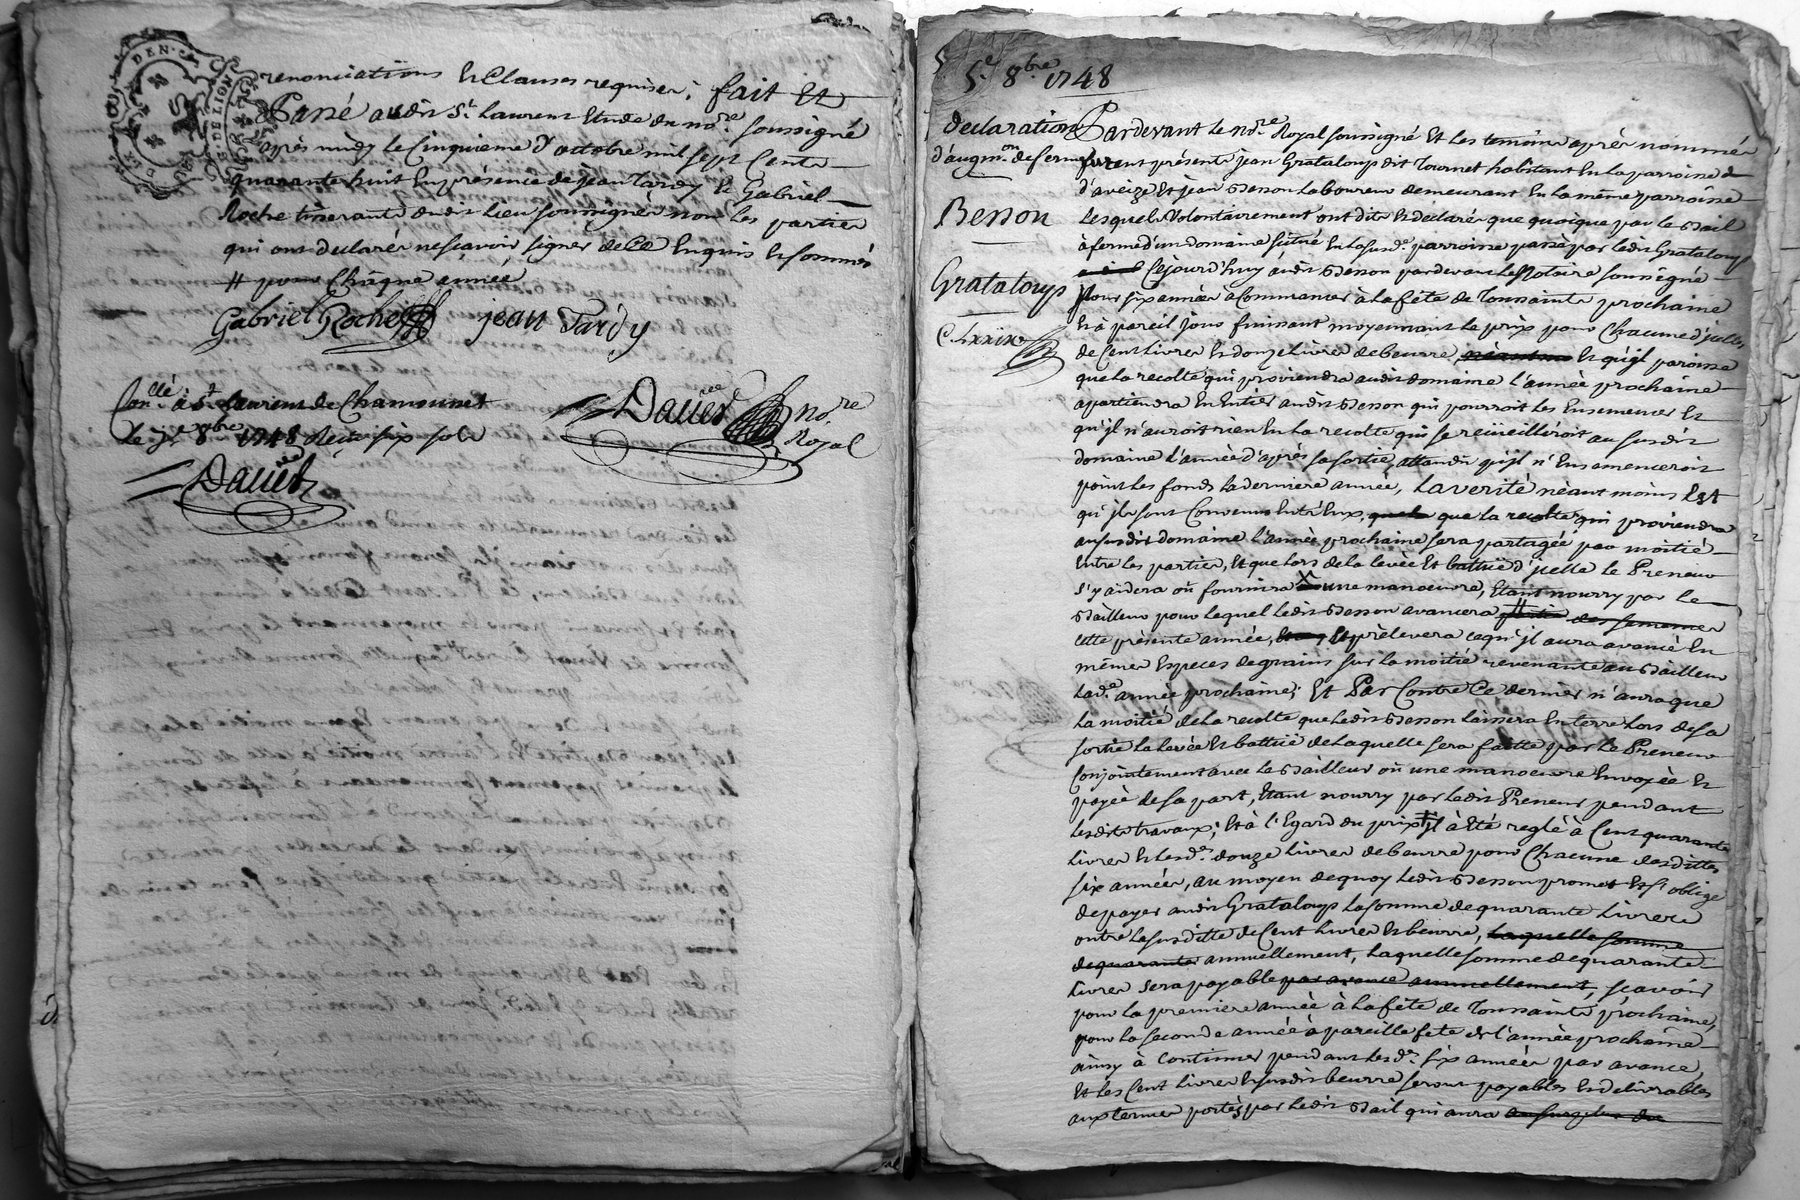 GEN. DE LION
renonciations Et Clauses requises; fait Et
Passé audit St. Laurent Etude du nore. soussigné
après midy le Cinquieme d'octobre mil sept Cents
quarante huit En présence de Jean Tardy Et Gabriel
Roche tisserants dudit lieu soussignés non les parties
qui ont declarés ne sçavoir signer de Ce Enquis Et sommés
# pour Chaque année
Gabriel Roche jean Tardy
Conllé. à St. Laurent de Chamousset
le 8bre 1748 Reçu six sols
Dauest nore. Royal
Dauest
5e. 8bre 1748
declaration
d'augmon. de ferme
Besson
Grataloup
C. Lxxix
Pardevant le nore. Royal soussigné Et les temoins après nommés
furent présents jean Grataloup dit Tournet habitant En la parroisse
d'aveize Et jean Besson Laboureur demeurant En la même parroisse
Lesquels Volontairement ont dit Et declaré que quoique par le Bail
à ferme d'un domaine scitué En la susde. parroisse passé par ledit Grataloup
Cejourd'huy audit Besson pardevant le Notaire soussigné
pour six années à Commencer à la fête de Toussaints prochaine
Et à pareil jour finissant moyennant le prix pour Chacune d'icelles
de Cent Livres Et douze Livres de beurre, néantm Et qu'jl paroisse
que La recolte qui proviendra audit domaine l'année prochaine
apartiendra En Entier audit Besson qui pourroit les Ensemencer Et
qu'jl n'auroit rien En La recolte qui se reüeilliroit au susdit
domaine l'année d'après sa sortie, attendu qu'jl n'Ensemenceroit
point les fonds la derniere année, La verité néantmoins Est
qu'jls sont Convenus Entr'Eux, que la que la recolte qui proviendra
au susdit domaine l'année prochaine sera partagée par moitié
Entre les parties, Et que lors de la levée Et battüe d'jcelle le Preneur
s'y aidera où fournira une manoeuvre, Etant nourry par le
Bailleur pour lequel ledit Besson avancera # des semences
cette présente année, Et prèlevera ce qu'jl aura avancé En
mêmes Especes de grains sur la moitié revenante au Bailleur
Lade. année prochaine; Et Par Contre Ce dernier n'aura que
La moitié de la recolte que ledit Besson laissera En terre lors de sa
sortie la levée Et battüe de laquelle sera faitte par le Preneur
Conjointement avec le Bailleur où une manoeuvre Envoyée Et
payée de sa part, Etant nourry par ledit Preneur pendant
lesdits travaux; Et à l'Egard du prix jl à Eté reglé à Cent quarante
Livres Et lesds. douze Livres de beurre pour Chacune desdittes
six années, au moyen de quoy ledit Besson promet Et s'oblige
de payer audit Grataloup la somme de quarante Livres
outre la susditte de Cent Livres Et beurre, laquelle somme
de quarante annuellement, Laquelle somme de quarante
Livres sera payable par avance annuellement, sçavoir
pour la premiere année à la fête de Toussaints prochaine,
pour la seconde année à pareille fete de l'année prochaine
ainsy à Continuer pendant lesds. six années par avance,
Et les Cent Livres Et susdit beurre seront payables Et delivrables
aux termes portés par ledit Bail qui aura